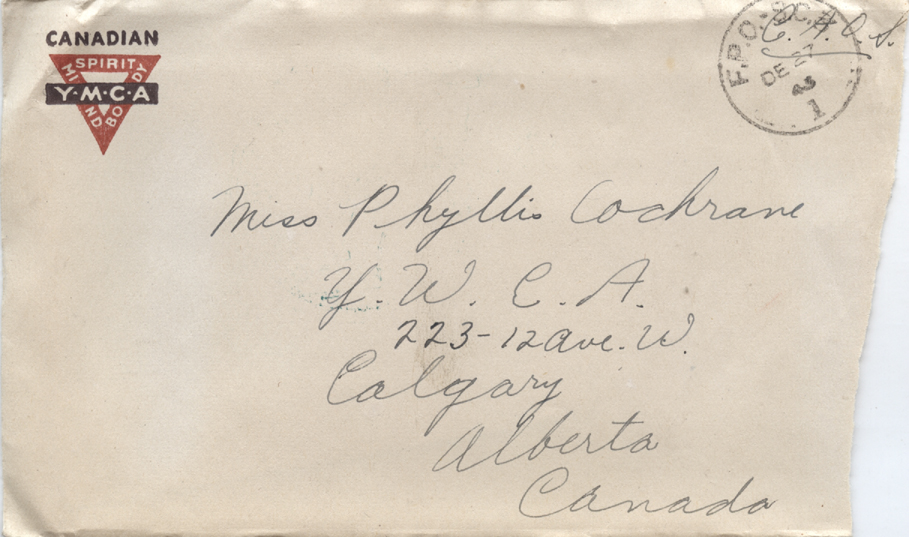 CANADIAN
SPIRIT
MIND
BODY
Y·M·C·A
F.P.O.-S.C.
DE 27
3
1
C.A.O.S.
Miss Phyllis Cochrane
Y.W.C.A.
223-12 ave. W.
Calgary
Alberta
Canada